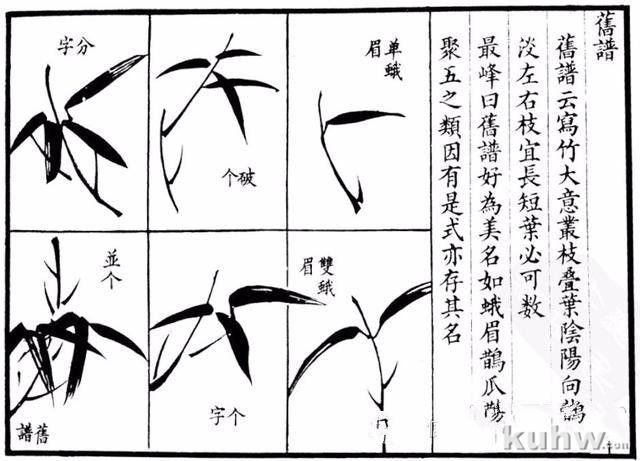 舊譜
舊譜云寫竹大意叢枝叠葉陰陽向
淡左右枝宜長短葉必可数
最峰曰舊譜好為美名如蛾眉鵲瓜
聚五之類因有是式亦存其名
单蛾
眉
破个
分字
雙蛾
眉
个字
並个
舊譜
kuhw.com